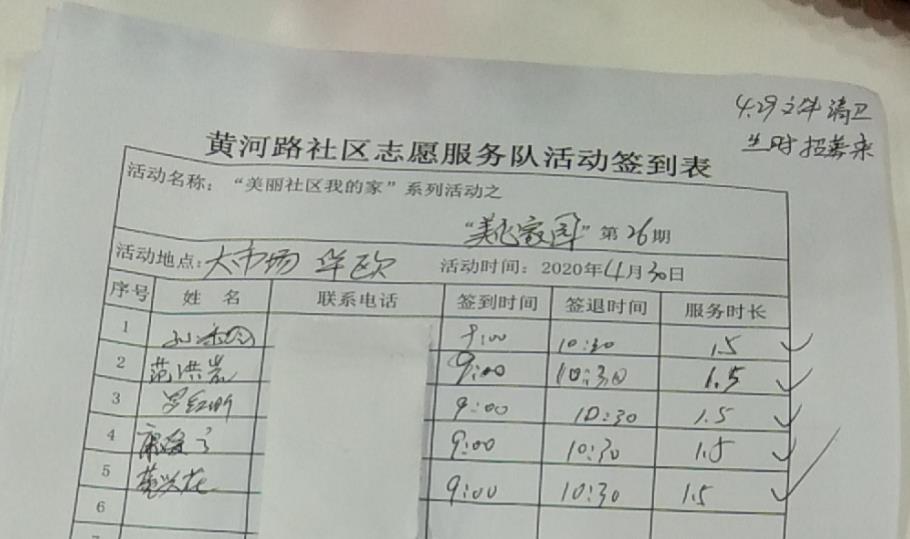 4.29文件请卫
生时招募来
黄河路社区志愿服务队活动签到表
活动名称："美丽社区我的家"系列活动之
"美化家园"第26期
活动地点：大市场 华欧 活动时间：2020年4月30日
序号 姓名 联系电话 签到时间 签退时间 服务时长
1 9:00 10:30 1.5
2 范洪岩 9:00 10:30 1.5
3 9:00 10:30 1.5
4 9:00 10:30 1.5
5 9:00 10:30 1.5
6